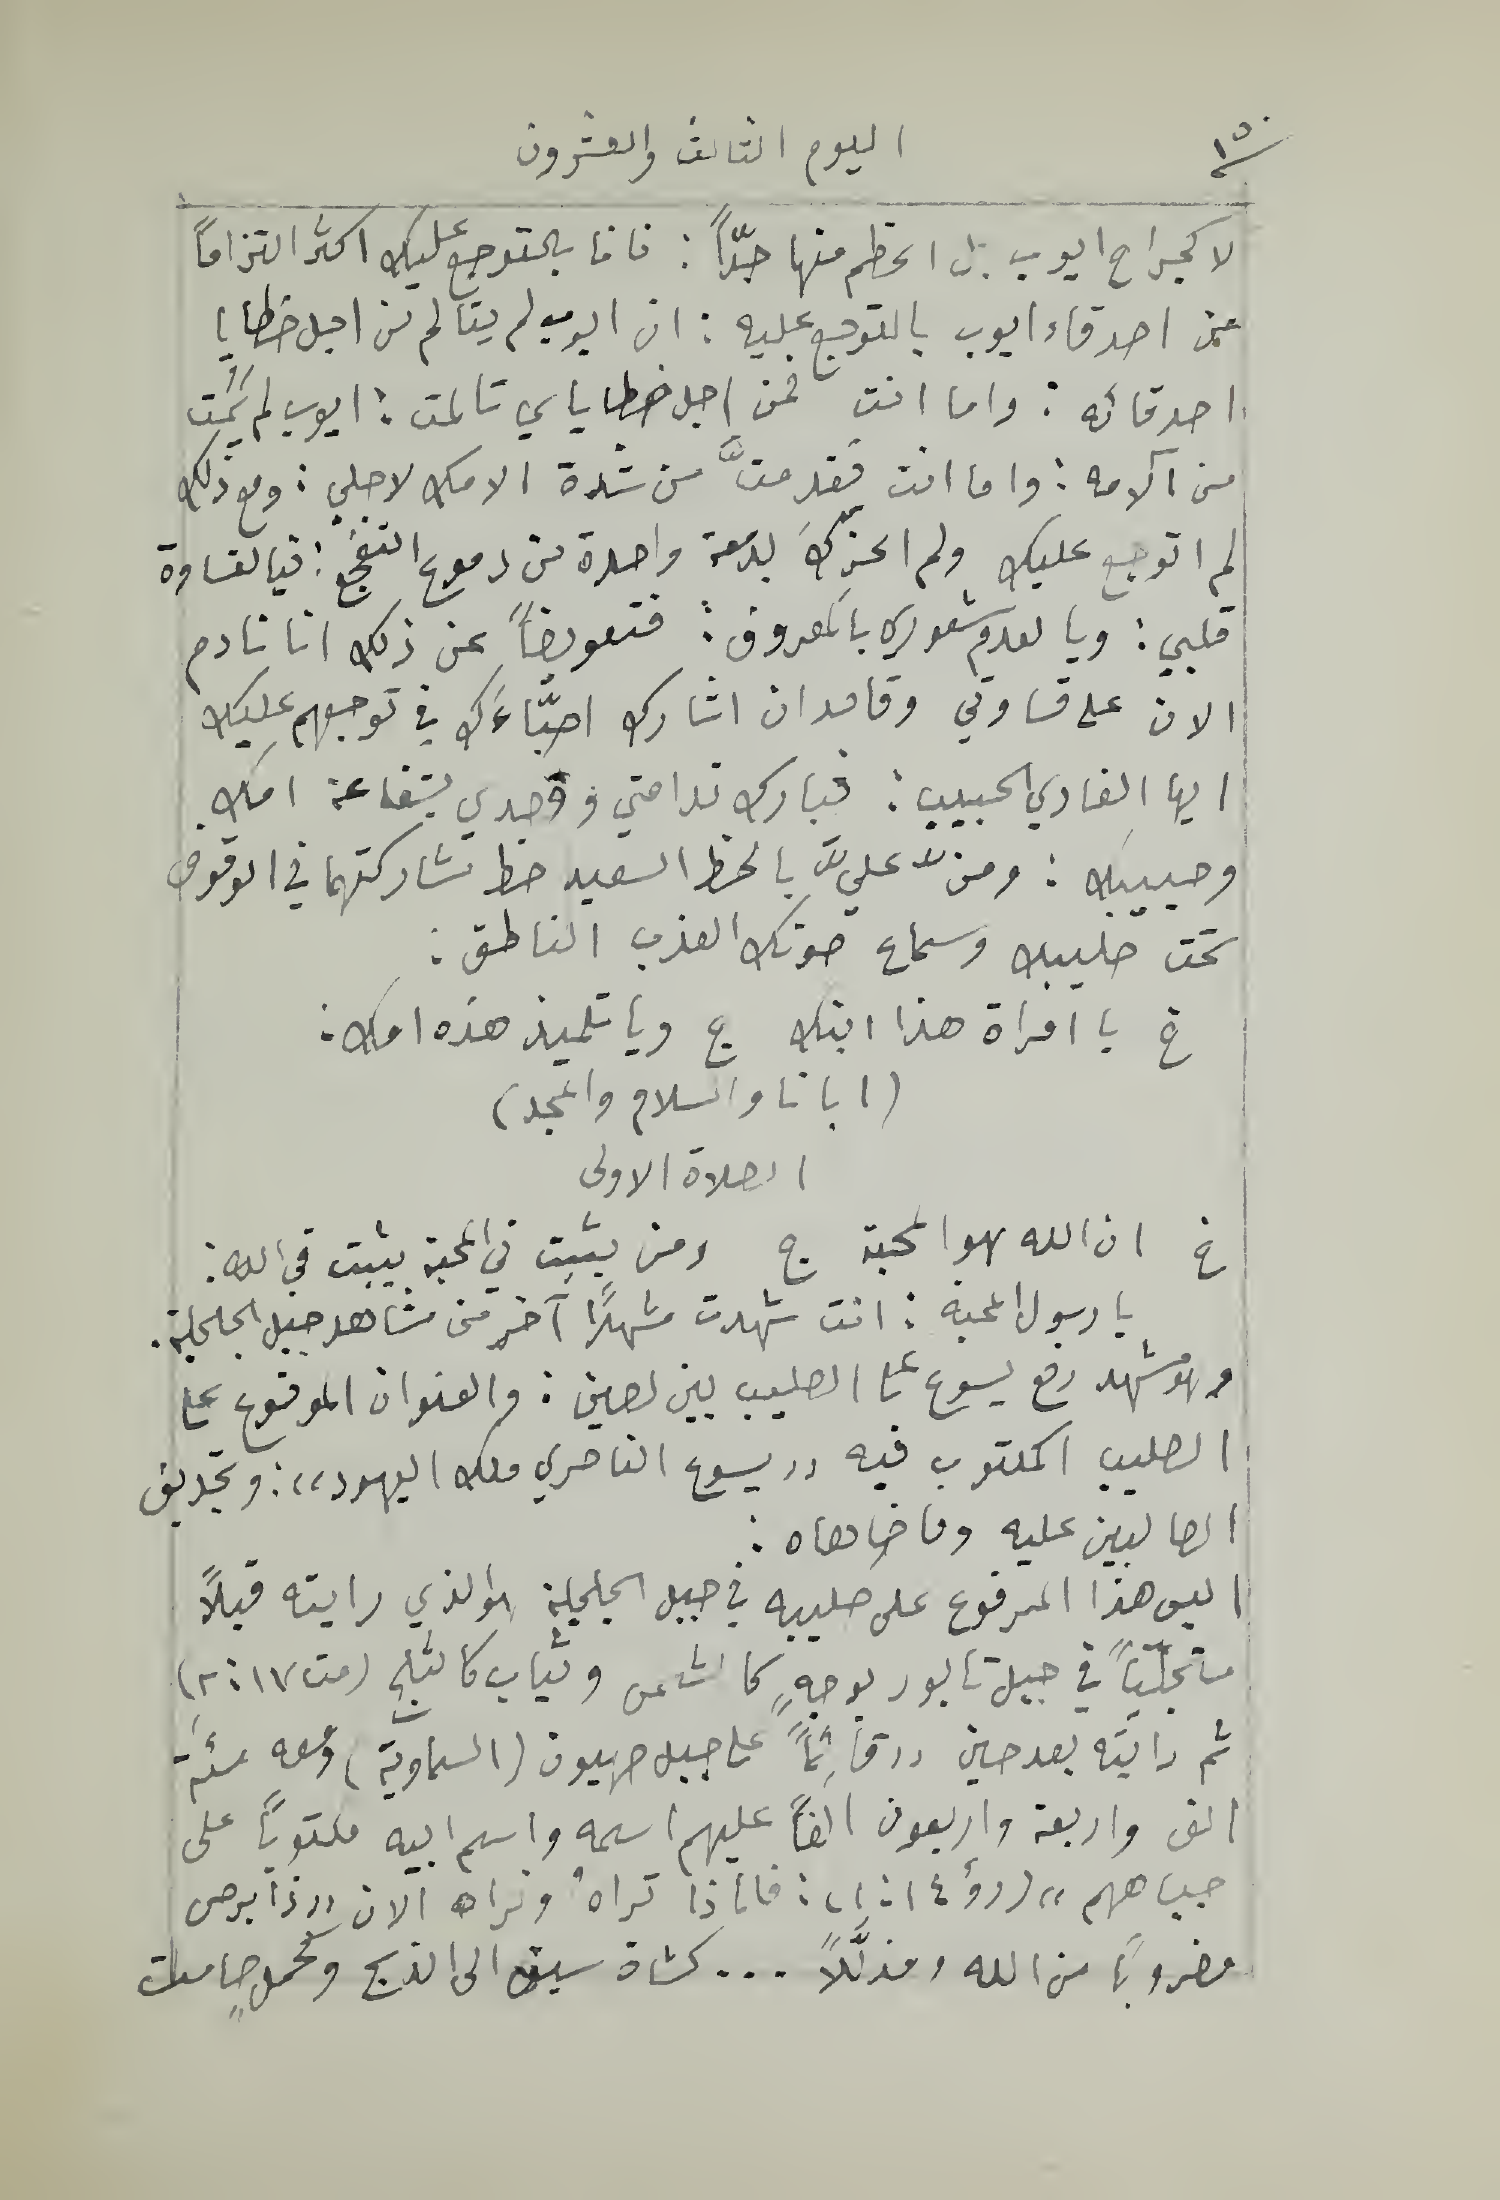 ١٥٠
اليوم الثالث والعشرون
لا كجراح ايوب بل اعظم منها جدّاً : فانا بالتوجع عليك اكثر التزاماً
من اصدقاء ايوب بالتوجع عليه : ان ايوب لم يتالم من اجل خطايا
اصدقائه : واما انت فمن اجل خطاياي تالمت : ايوب لم يَمُت
من آلامه : واما انت فقد متَّ من شدة الامك لاجلي : ومع ذلك
لم اتوجع عليك ولم اعزّكَ بدمعة واحدة من دموع التفجّع : فيا لقساوة
قلبي : ويا لعدم شعوري بالمعروف : فتعويضاً عن ذلك انا نادم
الان على قساوتي وقاصد ان اشارك احبّاءَك في توجعهم عليك
ايها الفادي الحبيب : فبارك ندامتي وقصدي بشفاعة امك
وحبيبك : ومنّ عليَّ بالحظ السعيد حظ مشاركتهما في الوقوف
تحت صليبك وسماع صوتك العذب الناطق :
خ يا امراة هذا ابنك ج ويا تلميذ هذه امك :
(ابانا والسلام والمجد)
الصلاة الاولى
خ ان الله هو المحبة ج ومن يثبت في المحبة يثبت في الله :
يا رسول المحبة : انت شهدت مشهدًا آخر من مشاهد جبل الجلجلة .
وهو مشهد رفع يسوع على الصليب بين لصين : والعنوان الموضوع على
الصليب المكتوب فيه ,, يسوع الناصري ملك اليهود ,, : وتجديف
الصالبين عليه وما ضاهاه :
اليس هذا المرفوع على صليبه في جبل الجلجلة هو الذي رايته قبلاً
متجلّياً في جبل تابور بوجهٍ كالشمس وثياب كالثلج (مت ١٧ : ٢)
ثم رايته بعد حين ,, قائماً على جبل صهيون (السماويّة) ومعه مئة
الف واربعة واربعون الفاً عليهم اسمه واسم ابيه مكتوباً على
جباههم ,, (رؤ ١٤ : ١) : فلماذا تراه ونراه الان ,, ذا برص
مضروباً من الله ومذلَّلاً ... كشاة سيق الى الذبح وكحمل صامت